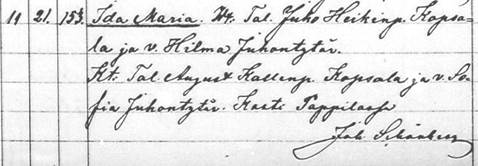 11 21. 153. Ida Maria. Wt. Tal. Juho Heikinp. Kopsa-
la ja v. Hilma Juhontytär.
Kt. Tal. August Kallenp. Kopsala ja v. So-
fia Juhontytär. Kasti Pappilassa
Joh. Schönberg